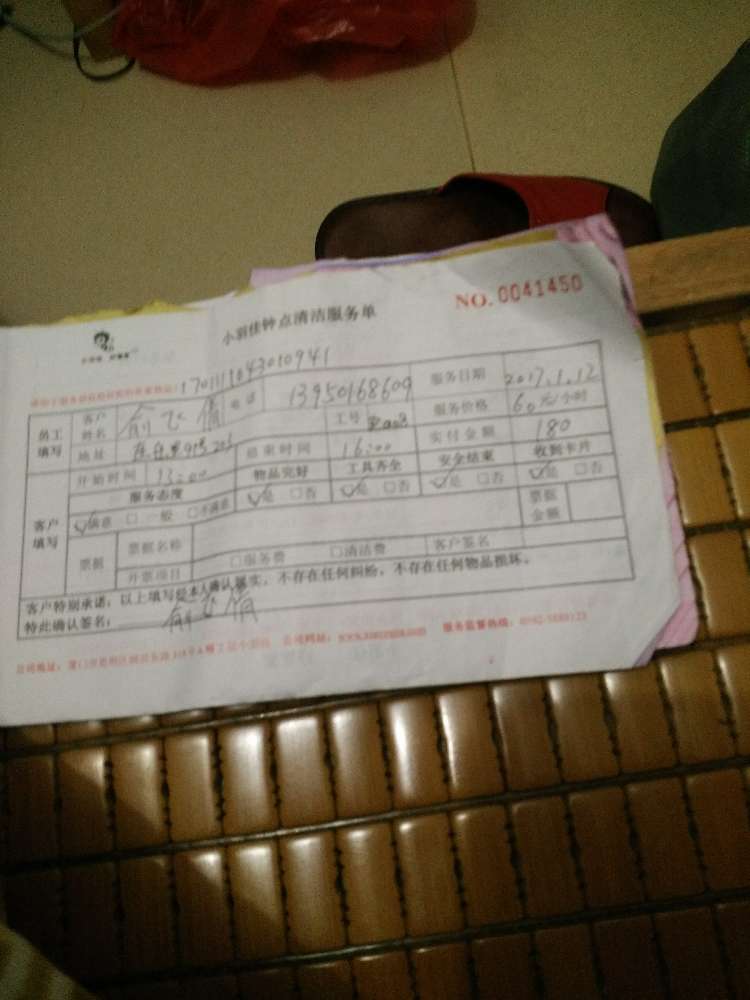 小羽佳钟点清洁服务单
NO. 0041450
170111043010941
员工填写 客户姓名 俞飞倩 电话 13950168609 服务日期 2017.1.12
地址 工号 服务价格 60元/小时
开始时间 13:00 结束时间 16:00 实付金额 180
服务态度 物品完好 工具齐全 安全结束 收到卡片
客户填写 ☑满意 □一般 □不满意 ☑是 □否 ☑是 □否 ☑是 □否 ☑是 □否
票据 票据名称 票据金额
开票项目 □服务费 □清洁费 客户签名
客户特别承诺：以上填写经本人确认属实，不存在任何纠纷，不存在任何物品损坏。
特此确认签名：俞飞倩
公司地址： 公司网址： 服务监督热线：